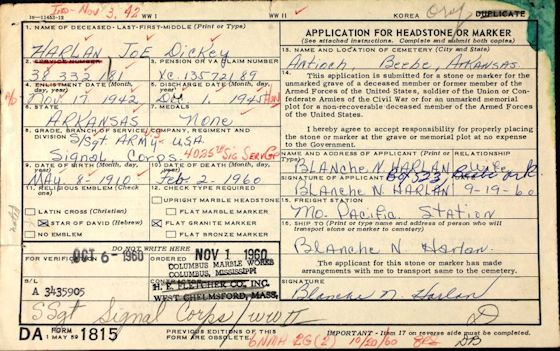 Ind-Nov 3, 42
16-11453-12
WW I
WW II
KOREA
DUPLICATE
1. NAME OF DECEASED-LAST-FIRST-MIDDLE (Print or Type)
HARLAN JOE Dickey
2. SERVICE NUMBER
38 332 181
3. PENSION OR VA CLAIM NUMBER
XC. 13572189
4. ENLISTMENT DATE (Month, day, year)
Nov 17 1942
5. DISCHARGE DATE (Month, day, year)
Dec 1, 1945 Hon
6. STATE
ARKANSAS
7. MEDALS
None
8. GRADE, BRANCH OF SERVICE, COMPANY, REGIMENT AND DIVISION
S/Sgt ARMY-USA
Signal Corps. 4025th Sig Serv Gp
9. DATE OF BIRTH (Month, day, year)
MAY 8 1910
10. DATE OF DEATH (Month, day, year)
Feb 2, 1960
11. RELIGIOUS EMBLEM (Check one)
LATIN CROSS (Christian)
STAR OF DAVID (Hebrew)
NO EMBLEM
12. CHECK TYPE REQUIRED
UPRIGHT MARBLE HEADSTONE
FLAT MARBLE MARKER
FLAT GRANITE MARKER
FLAT BRONZE MARKER
DO NOT WRITE HERE
FOR VERIFICATION
OCT 6-1960
NOV 1 1960
COLUMBUS MARBLE WORKS
COLUMBUS, MISSISSIPPI
B/L
A 3435905
H. E. FLETCHER CO., INC.
WEST CHELMSFORD, MASS.
S Sgt Signal Corps/WWII
APPLICATION FOR HEADSTONE OR MARKER
(See attached instructions. Complete and submit both copies)
13. NAME AND LOCATION OF CEMETERY (City and State)
Antioch Beebe, ARKANSAS.
14.
This application is submitted for a stone or marker for the
unmarked grave of a deceased member or former member of the
Armed Forces of the United States, soldier of the Union or Con-
federate Armies of the Civil War or for an unmarked memorial
plot for a non-recoverable deceased member of the Armed
Forces of the United States.
I hereby agree to accept responsibility for properly placing
the stone or marker at the grave or memorial plot at no expense
to the Government.
NAME AND ADDRESS OF APPLICANT (Print or Type)
RELATIONSHIP
BLANCHE N. HARLAN wife
SIGNATURE OF APPLICANT
Blanche N. HARLAN 9-19-60
15. FREIGHT STATION
Mo. Pacific Station
16. SHIP TO (Print or type name and address of person who will
transport stone or marker to cemetery)
Blanche N. Harlan.
The applicant for this stone or marker has made
arrangements with me to transport same to the cemetery.
SIGNATURE
Blanche N Harlan
DA FORM 1815
1 MAY 59
PREVIOUS EDITIONS OF THIS
FORM ARE OBSOLETE.
IMPORTANT - Item 17 on reverse side must be completed.
10/20/60